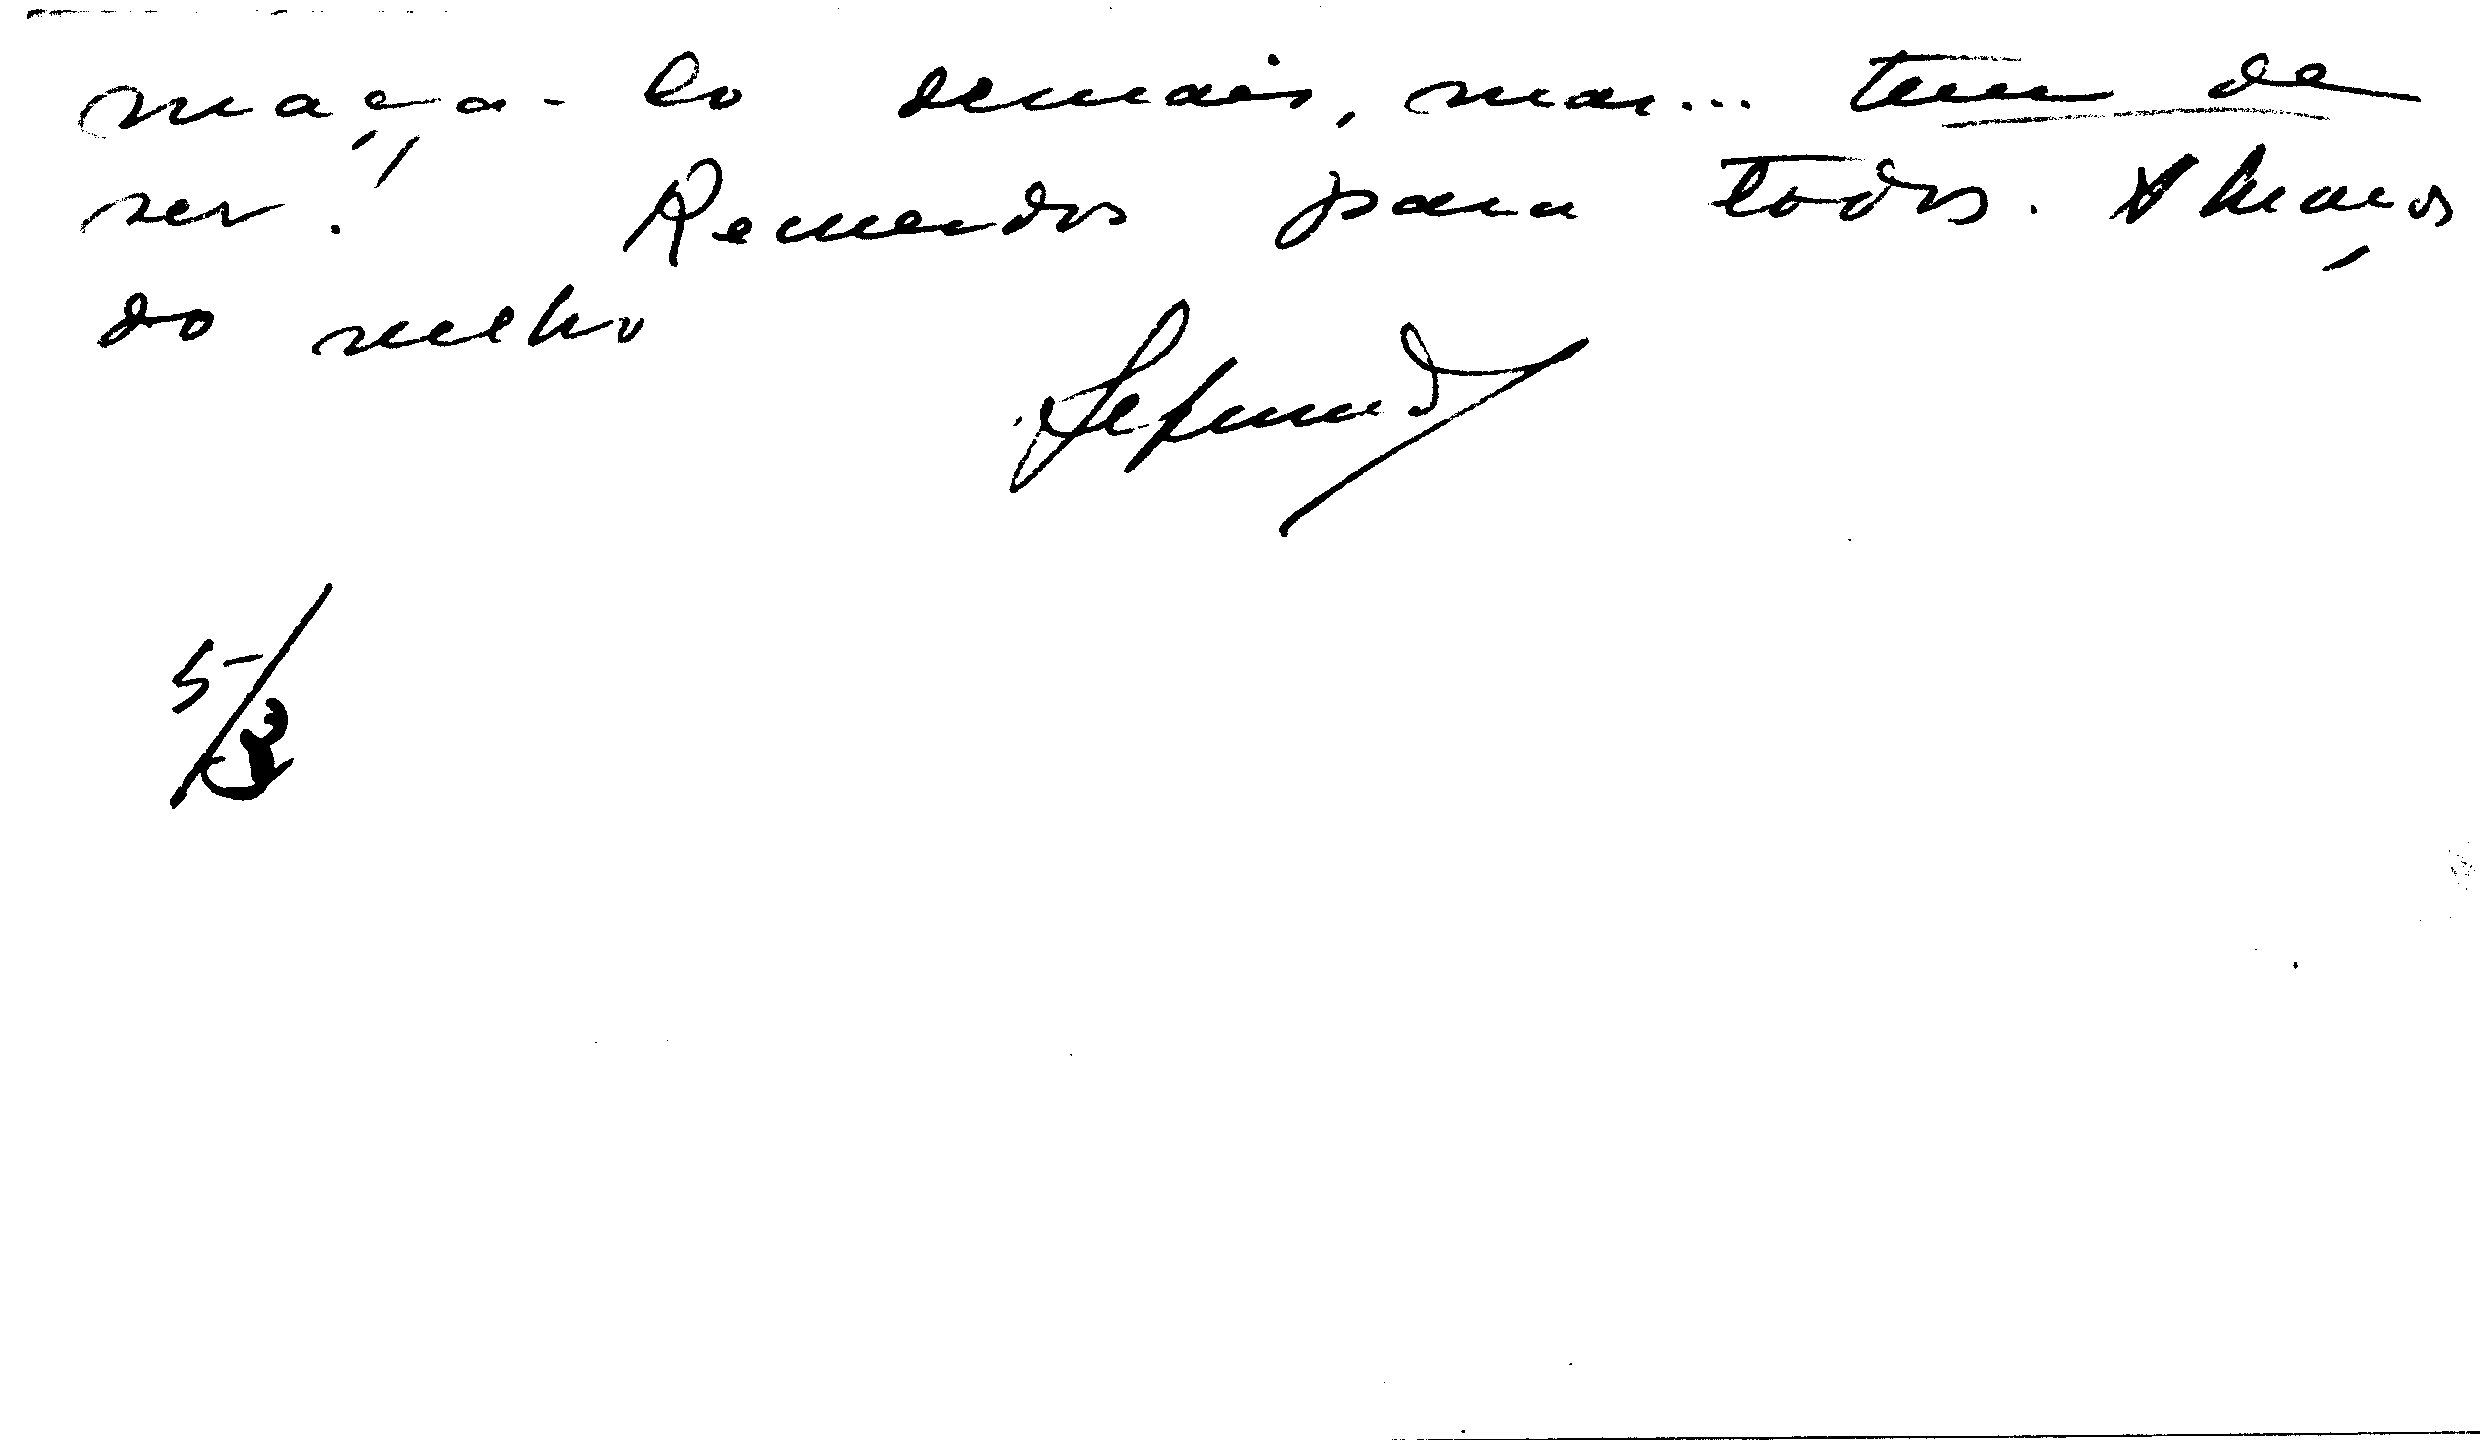 maça-lo demais, mas... tem de
ser! Recuerdos para todos. Abraços
do velho
Segund
5/3